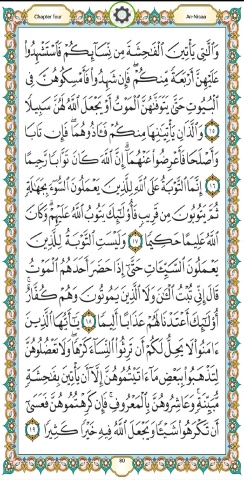 Chapter four
An-Nisaa
وَٱلَّٰتِي يَأۡتِينَ ٱلۡفَٰحِشَةَ مِن نِّسَآئِكُمۡ فَٱسۡتَشۡهِدُواْ
عَلَيۡهِنَّ أَرۡبَعَةٗ مِّنكُمۡۖ فَإِن شَهِدُواْ فَأَمۡسِكُوهُنَّ فِي
ٱلۡبُيُوتِ حَتَّىٰ يَتَوَفَّىٰهُنَّ ٱلۡمَوۡتُ أَوۡ يَجۡعَلَ ٱللَّهُ لَهُنَّ سَبِيلٗا
١٥ وَٱلَّذَانِ يَأۡتِيَٰنِهَا مِنكُمۡ فَـَٔاذُوهُمَاۖ فَإِن تَابَا
وَأَصۡلَحَا فَأَعۡرِضُواْ عَنۡهُمَآۗ إِنَّ ٱللَّهَ كَانَ تَوَّابٗا رَّحِيمًا
١٦ إِنَّمَا ٱلتَّوۡبَةُ عَلَى ٱللَّهِ لِلَّذِينَ يَعۡمَلُونَ ٱلسُّوٓءَ بِجَهَٰلَةٖ
ثُمَّ يَتُوبُونَ مِن قَرِيبٖ فَأُوْلَٰٓئِكَ يَتُوبُ ٱللَّهُ عَلَيۡهِمۡۗ وَكَانَ
ٱللَّهُ عَلِيمًا حَكِيمٗا ١٧ وَلَيۡسَتِ ٱلتَّوۡبَةُ لِلَّذِينَ
يَعۡمَلُونَ ٱلسَّيِّـَٔاتِ حَتَّىٰٓ إِذَا حَضَرَ أَحَدَهُمُ ٱلۡمَوۡتُ
قَالَ إِنِّي تُبۡتُ ٱلۡـَٰٔنَ وَلَا ٱلَّذِينَ يَمُوتُونَ وَهُمۡ كُفَّارٌۚ
أُوْلَٰٓئِكَ أَعۡتَدۡنَا لَهُمۡ عَذَابًا أَلِيمٗا ١٨ يَٰٓأَيُّهَا ٱلَّذِينَ
ءَامَنُواْ لَا يَحِلُّ لَكُمۡ أَن تَرِثُواْ ٱلنِّسَآءَ كَرۡهٗاۖ وَلَا تَعۡضُلُوهُنَّ
لِتَذۡهَبُواْ بِبَعۡضِ مَآ ءَاتَيۡتُمُوهُنَّ إِلَّآ أَن يَأۡتِينَ بِفَٰحِشَةٖ
مُّبَيِّنَةٖۚ وَعَاشِرُوهُنَّ بِٱلۡمَعۡرُوفِۚ فَإِن كَرِهۡتُمُوهُنَّ فَعَسَىٰٓ
أَن تَكۡرَهُواْ شَيۡـٔٗا وَيَجۡعَلَ ٱللَّهُ فِيهِ خَيۡرٗا كَثِيرٗا ١٩
80